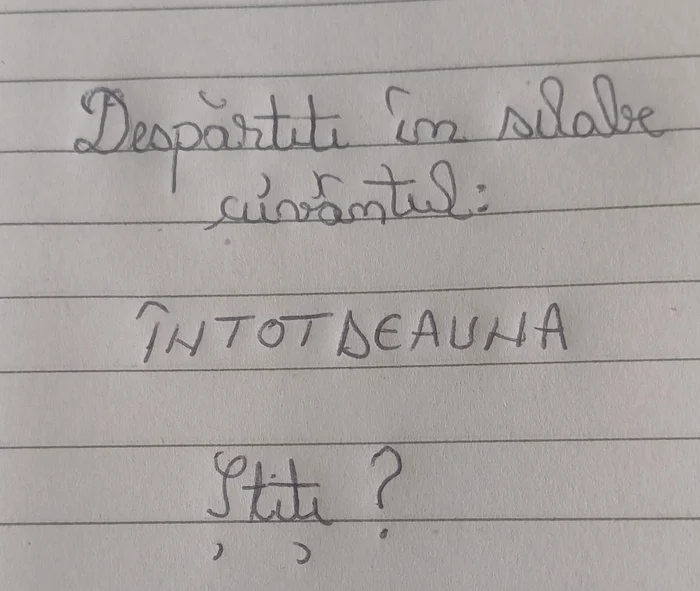 Despărtiti în silabe
cuvântul:
ÎNTOTDEAUNA
Știți ?